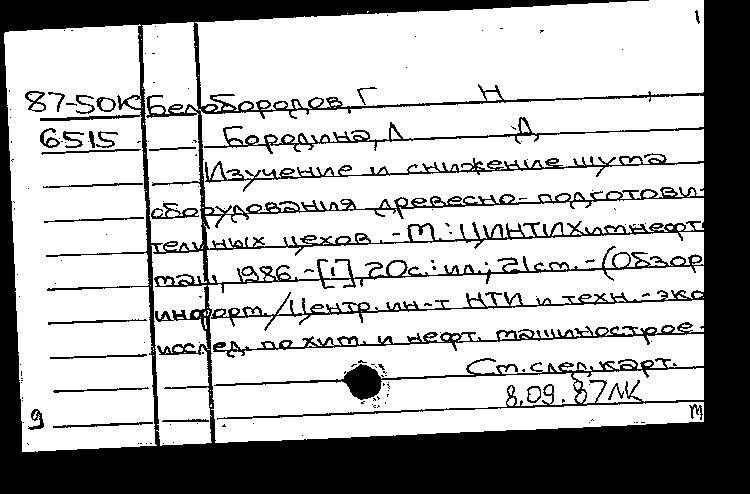 1
87-50K Белобородов, Г Н
6515 Бородина, Л Д
Изучение и снижение шума
оборудования древесно-подготови-
тельных цехов. - М.: ЦИНТИХимнефте
маш, 1986. - [1], 20с.: ил.; 21 см. - (Обзор
информ. / Центр. ин-т НТИ и техн.-эко
исслед. по хим. и нефт. машинострое-
См. след. карт.
8.09.87 ЛК
9 m